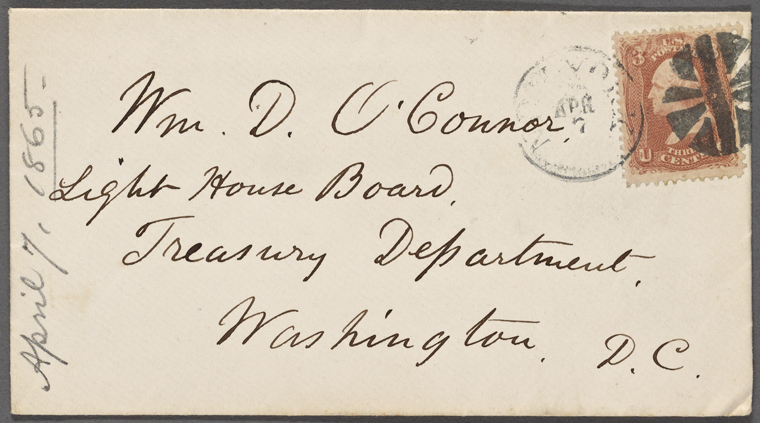 Wm. D. O'Connor,
Light House Board,
Treasury Department,
Washington, D.C.
April 7, 1865-
NEW YORK
APR
7
3
U.S.
POSTAGE
U
THREE
CENTS